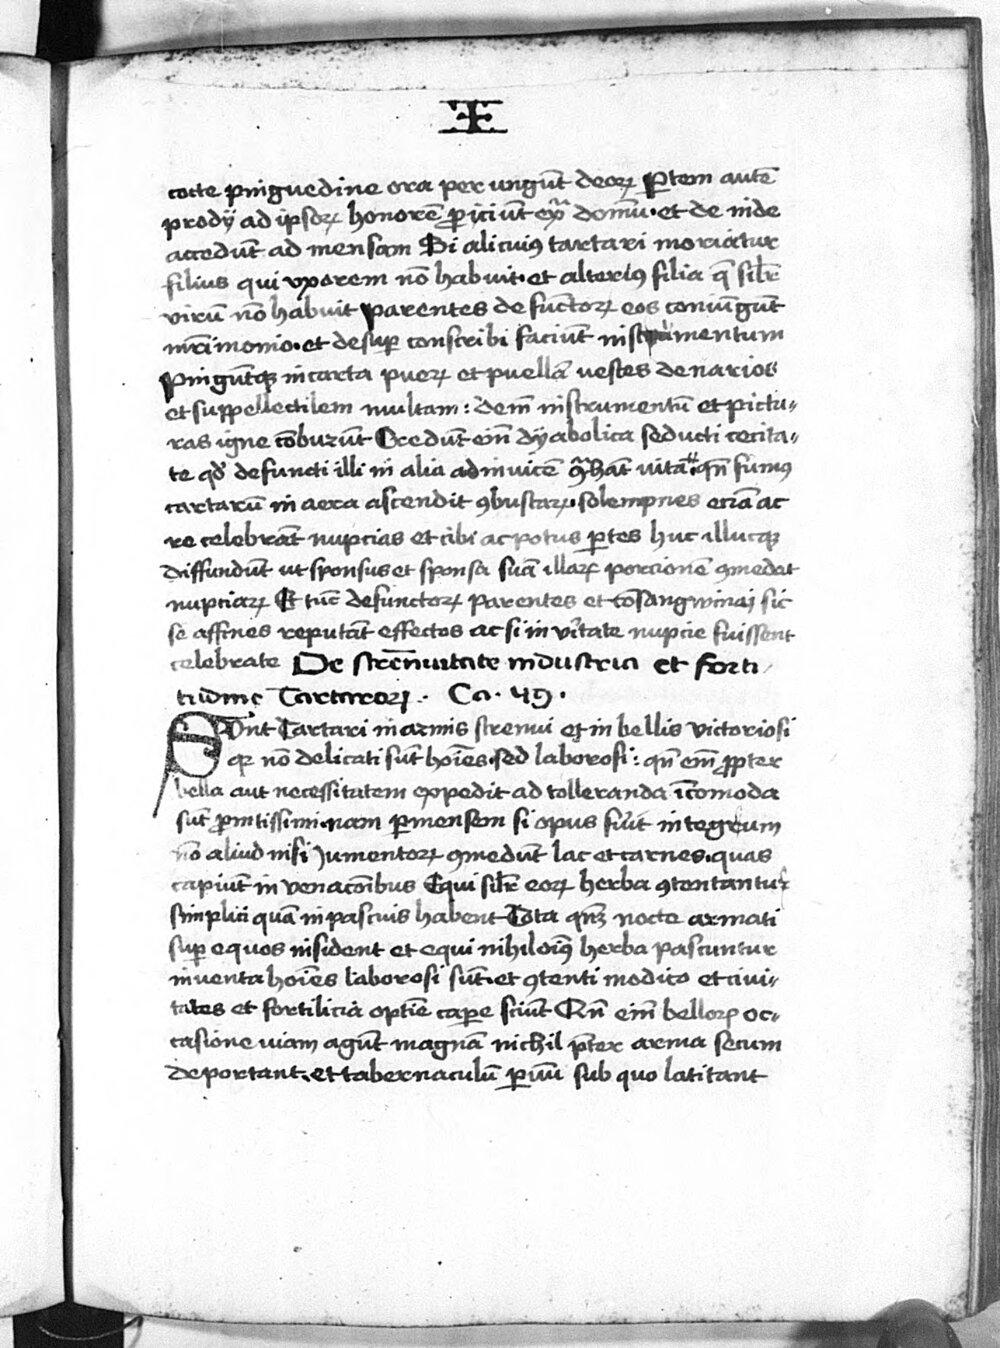 cocte pinguedine ora per ungūt deoꝝ ꝑtem autē
prodij ad ipsoꝝ honorē ꝓiciūt exͣ domū · et de inde
accedūt ad mensam Si alicuiꝰ tartari moriatur
filius qui vxorem nō habuit · et alteriꝰ filia q̄ silr̄
virū nō habuit parentes defūctoꝝ eos coniūgūt
mr̄imonio · et desuꝑ conscribi faciūt instrumentum
pingūtqꝫ in carta pueꝝ et puellā vestes denarios
et suppellectilem multam : demū instrumentū et pictu〃
ras igne cōburūt Credūt em̄ dyabolica seducti cecita〃
te qd̓ defuncti illi in alia adinuicē ꝯͣhāt vita · qn̄ fumꝰ
cartarū in aera ascendit ꝯbustaꝝ · solempnes eciā ac
re celebrāt nupcias et cibi ac potus ꝑtes huc illucqꝫ
diffundūt ut sponsus et sponsa suā illaꝝ porcionē ꝯmedāt
nupciaꝝ Et tūc defunctoꝝ parentes et cōsangwinei sic
se affines reputāt effectos ac si in vītate nupcie fuissent
celebrate De strēnuitate industria et forti〃
tudine Tartaroꝝ · Ca · 49 ·
Sūnt Tartari in armis strenui et in bellis victoriosi
qꝛ nō delicati sūt hoīes · sed laborosi : qn̄ em̄ ꝓpter
bella aut necessitatem expedit ad tolleranda īcomoda
sūt ꝓmtissimi · nam ꝑ mensem si opus fūit integrum
nō aliud nisi Jumentoꝝ ꝯmedūt lac et carnes · quas
capiūt in venacōibus Equi silr̄ eoꝝ herba ꝯtentantur
simplici quā in pascuis habent Tota qn̄qꝫ nocte armati
suꝑ equos insident et equi nihiloīꝰ herba pascuntur
inventa hoīes laborosi sūt · et ꝯtenti modico et civi〃
tates et fortilicia optīe caꝑe sciūt Qn̄ em̄ belloꝝ oc〃
casione viam agūt magnā nichil p̄ter arma secum
deportant · et tabernaculū ꝑuū sub quo latitant